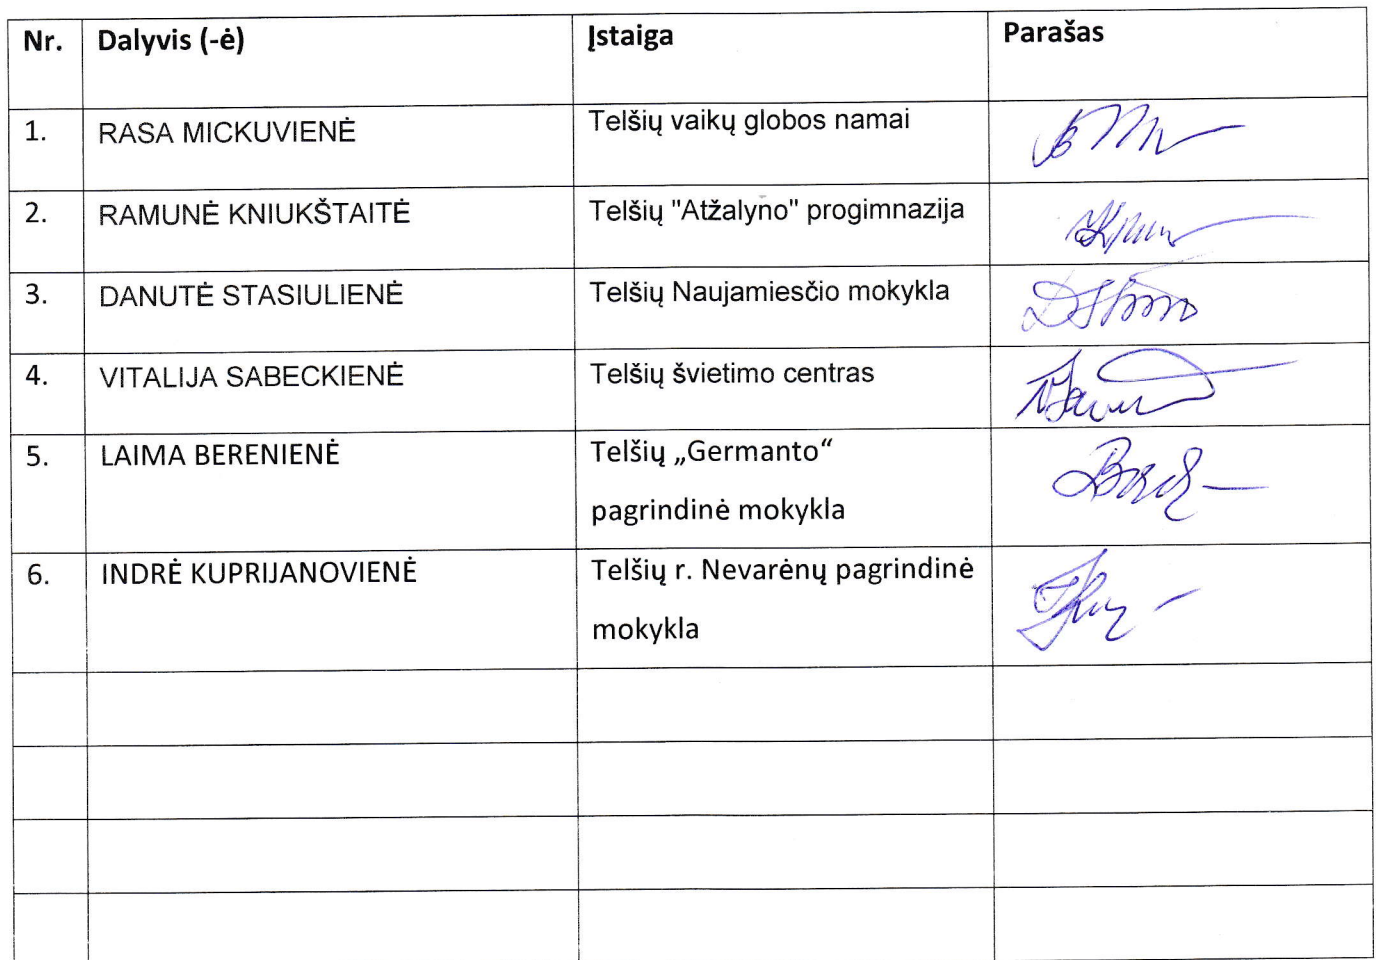 Nr. Dalyvis (-ė) Įstaiga Parašas
1. RASA MICKUVIENĖ Telšių vaikų globos namai
2. RAMUNĖ KNIUKŠTAITĖ Telšių "Atžalyno" progimnazija
3. DANUTĖ STASIULIENĖ Telšių Naujamiesčio mokykla
4. VITALIJA SABECKIENĖ Telšių švietimo centras
5. LAIMA BERENIENĖ Telšių „Germanto“
pagrindinė mokykla
6. INDRĖ KUPRIJANOVIENĖ Telšių r. Nevarėnų pagrindinė
mokykla